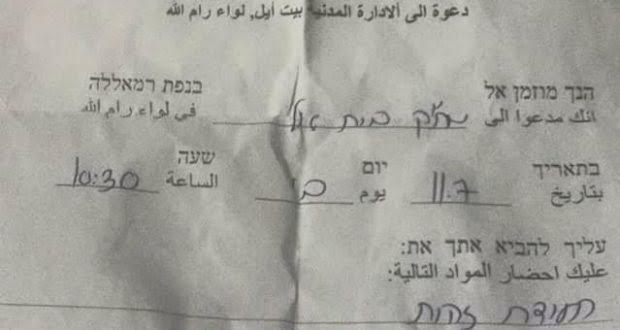 دعوة الى ألادارة المدنية بيت أيل, لواء رام الله
הנך מוזמן אל בנפת רמאללה
انك مدعوا الى מת"ק בית אל في لواء رام الله
בתאריך יום שעה
بتاريخ 11.7 يوم ב' الساعة 10:30
עליך להביא אתך את:
عليك احضار المواد التالية:
תעודת זהות